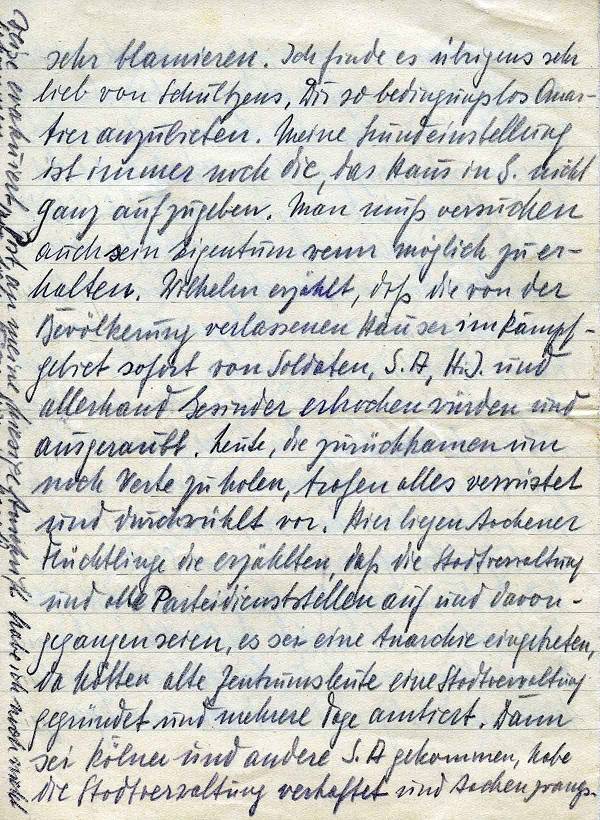 sehr blamieren. Ich finde es übrigens sehr
lieb von Schultzens, Dir so bedingungslos Quar-
tier anzubieten. Meine Grundeinstellung
ist immer noch die, das Haus in S. nicht
ganz aufzugeben. Man muß versuchen
auch sein Eigentum wenn möglich zu er-
halten. Wilhelm erzählt, daß die von der
Bevölkerung verlassenen Häuser im Kampf-
gebiet sofort von Soldaten, S.A, H.J. und
allerhand Gesinder erbrochen würden und
ausgeraubt. Leute, die zurückkamen um
noch Werte zu holen, trafen alles verwüstet
und durchwühlt vor. Hier liegen Aachener
Flüchtlinge die erzählten, daß die Stadtverwaltung
und alle Parteidienststellen auf und davon-
gegangen seien, es sei eine Anarchie eingetreten,
da hätten alte Zentrumsleute eine Stadtverwaltung
gegründet und mehrere Tage amtiert. Dann
sei Kölner und andere S.A gekommen, habe
die Stadtverwaltung verhaftet und Aachen zwangs-
an meine hiesige Anschrift habe ich noch nicht